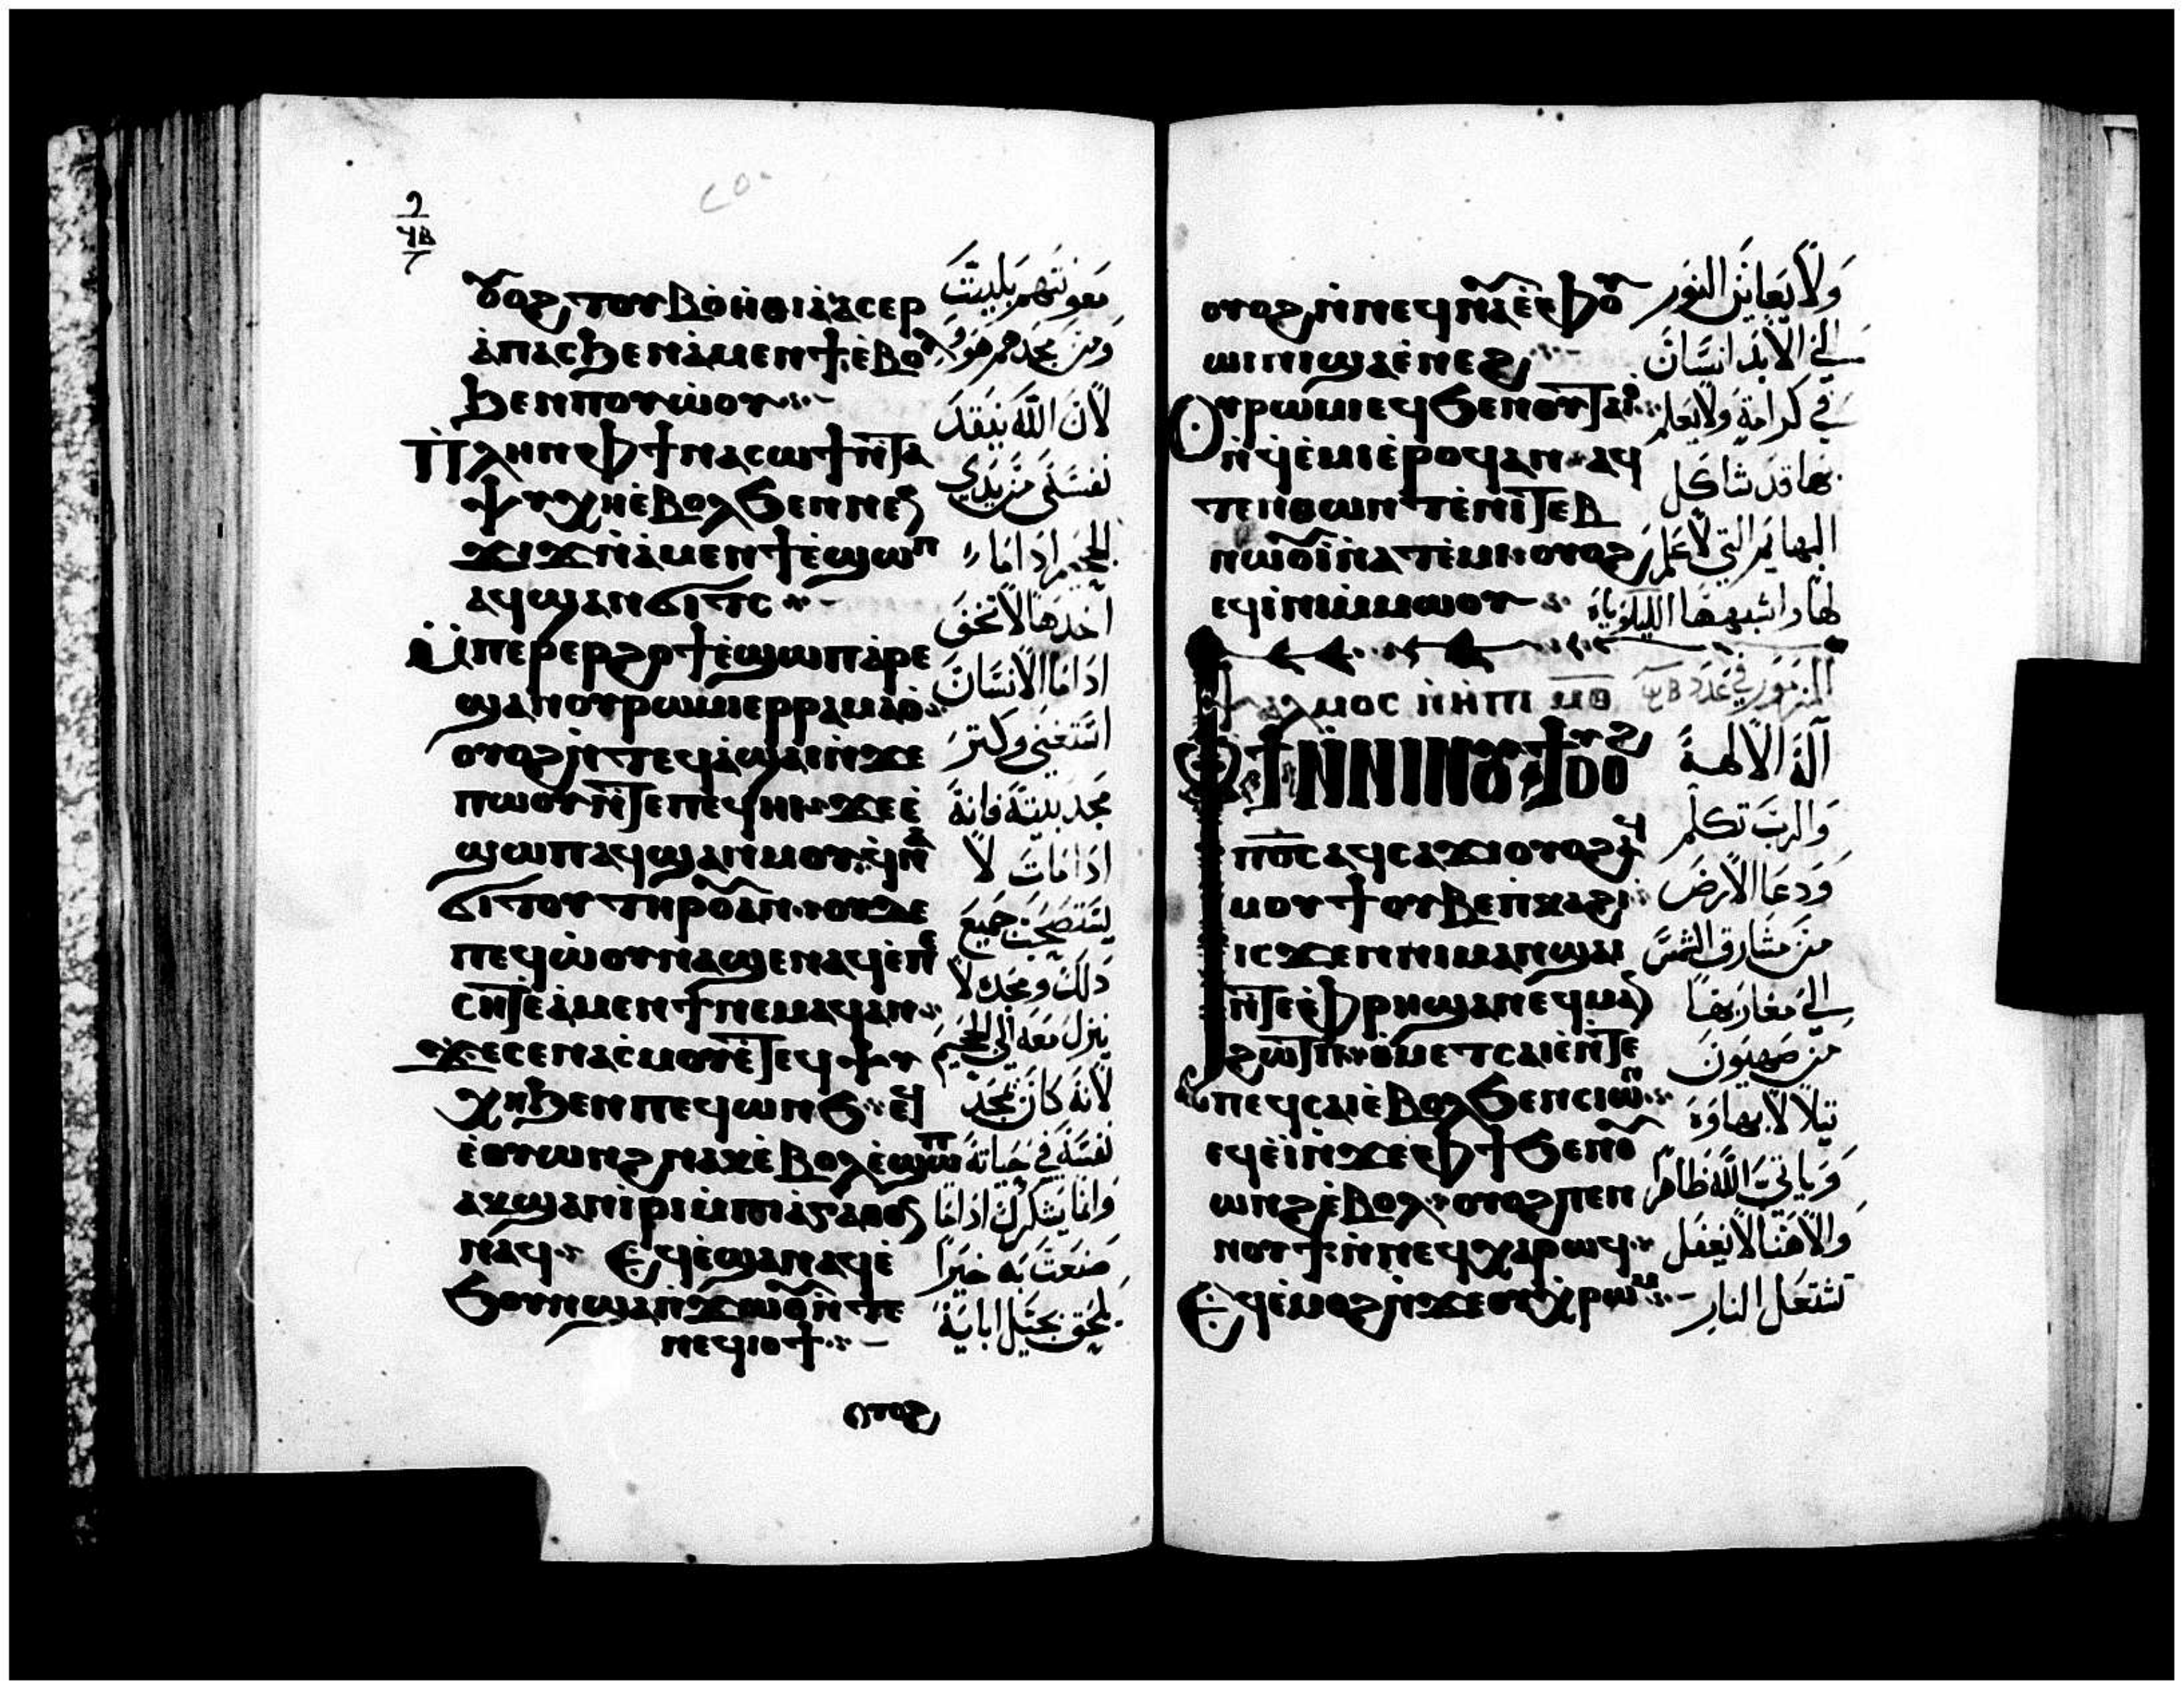 ⲟⲩⲟϩ ⲧⲟⲩⲃⲟⲏⲑⲓⲁ ⲁⲥⲉⲣ
ⲁⲡⲁⲥ ϧⲉⲛ ⲁⲙⲉⲛϯ ⲉⲃⲟⲗ
ϧⲉⲛ ⲡⲟⲩⲱⲟⲩ
ⲡⲗⲏⲛ ⲫϯ ⲛⲁⲥⲱϯ ⲛⲧⲁ
ⲯⲩⲭⲏ ⲉⲃⲟⲗ ϧⲉⲛ ⲛⲉⲛ
ϫⲓϫ ⲛⲁⲙⲉⲛϯ ⲉϣⲱⲡ
ⲁϥϣⲁⲛϭⲓⲧⲥ
ⲙⲡⲉⲣⲉⲣϩⲟϯ ⲉϣⲱⲡ ⲁⲣⲉ
ϣⲁⲛ ⲟⲩⲣⲱⲙⲓ ⲉⲣⲣⲁⲙⲁⲟ
ⲟⲩⲟϩ ⲛⲧⲉϥⲁϣⲁⲓ ⲛϫⲉ
ⲡⲱⲟⲩ ⲛⲧⲉ ⲡⲉϥⲏⲓ ϫⲉ ⲉ
ϣⲱⲡ ⲁϥϣⲁⲛⲙⲟⲩ ϥⲛⲁ
ϭⲓⲧⲟⲩ ⲧⲏⲣⲟⲩ ⲁⲛ ⲟⲩⲇⲉ
ⲡⲉϥⲱⲟⲩ ⲛⲁϣⲉⲛⲁϥ ⲉⲡⲉ
ⲥⲏⲧ ⲉⲁⲙⲉⲛϯ ⲛⲉⲙⲁϥ ⲁⲛ
ϫⲉ ⲥⲉⲛⲁⲥⲙⲟⲩ ⲉⲧⲉϥⲯⲩ
ⲭⲏ ϧⲉⲛ ⲡⲉϥⲱⲛϧ ⲉϥ
ⲉⲟⲩⲱⲛϩ ⲛⲁⲕ ⲉⲃⲟⲗ ⲉϣⲱⲡ
ⲁⲕϣⲁⲛⲓⲣⲓ ⲙⲡⲓⲁⲅⲁⲑⲟⲛ
ⲛⲁϥ ⲉϥⲉϣⲉⲛⲁϥ ⲉ
ϧⲟⲩⲛ ϣⲁ ⲛϫⲱⲟⲩ ⲛⲧⲉ
ⲛⲉϥⲓⲟϯ
ⲟⲩⲟϩ
معونتهم بليت
ومن مجدهم هوو
لان الله ينقد
نفسي من يدي
الجحيم ادا ما
اخدها لا تخف
ادا ما الانسان
استغنى وكتر
مجد بيته فانه
ادا مات لا
يستصحب جميع
دلك ومجده لا
ينزل معه الى الجحيم
لانه كان تمجد
نفسه في حياته
وانما يشكرك ادا ما
صنعت به خيرا
يلحق بجيل ابايه
ⲟⲩⲟϩ ⲛⲛⲉϥⲛⲁⲩ ⲉⲫⲟⲩ
ⲱⲓⲛⲓ ϣⲁ ⲉⲛⲉϩ
ⲟⲩⲣⲱⲙⲓ ⲉϥϧⲉⲛ ⲟⲩⲧⲁⲓⲟ
ⲛϥⲉⲙⲓ ⲉⲣⲟϥ ⲁⲛ ⲁϥ
ⲧⲉⲛⲑⲱⲛⲧ ⲉⲛⲓⲧⲉⲃ
ⲛⲱⲟⲩⲓ ⲛⲁⲧⲉⲙⲓ ⲟⲩⲟϩ
ⲉϥⲓⲛⲓ ⲙⲙⲱⲟⲩ
ولا يعاين النور
الى الابد انسان
في كرامة ولا يعلم
بها قد شاكل
البهايم التي لا علم
لها واشبهها الليلوياه
ⲯⲁⲗⲙⲟⲥ ⲛⲏⲡⲓ ⲙⲑ المزمور في عدد
ⲫϯ ⲛⲛⲓⲛⲟⲩϯ ⲟⲩⲟϩ
ⲡϭⲟⲓⲥ ⲁϥⲥⲁϫⲓ ⲟⲩⲟϩ ⲁϥ
ⲙⲟⲩϯ ⲟⲩⲃⲉ ⲡⲕⲁϩⲓ
ⲓⲥϫⲉⲛ ⲛⲓⲙⲁⲛϣⲁⲓ
ⲛⲧⲉ ⲫⲣⲏ ϣⲁ ⲛⲉϥⲙⲁⲛ
ϩⲱⲧⲡ ⲟⲩⲙⲉⲧⲥⲁⲓⲉ ⲛⲧⲉ
ⲡⲉϥⲥⲁⲓ ⲉⲃⲟⲗ ϧⲉⲛ ⲥⲓⲱⲛ
ⲉϥⲉⲓ ⲛϫⲉ ⲫϯ ϧⲉⲛ ⲟⲩ
ⲱⲛϩ ⲉⲃⲟⲗ ⲟⲩⲟϩ ⲡⲉⲛ
ⲛⲟⲩϯ ⲛⲛⲉϥⲭⲁⲣⲱϥ
ⲉϥⲉⲙⲟϩ ⲛϫⲉ ⲟⲩⲭⲣⲱⲙ
اله الالهة
والرب تكلم
ودعا الارض
من مشارق الشمس
الى مغاربها
من صهيون
تيلالا بهاوه
وياتي الله ظاهرا
والاهنا لا يغفل
تشتعل النار